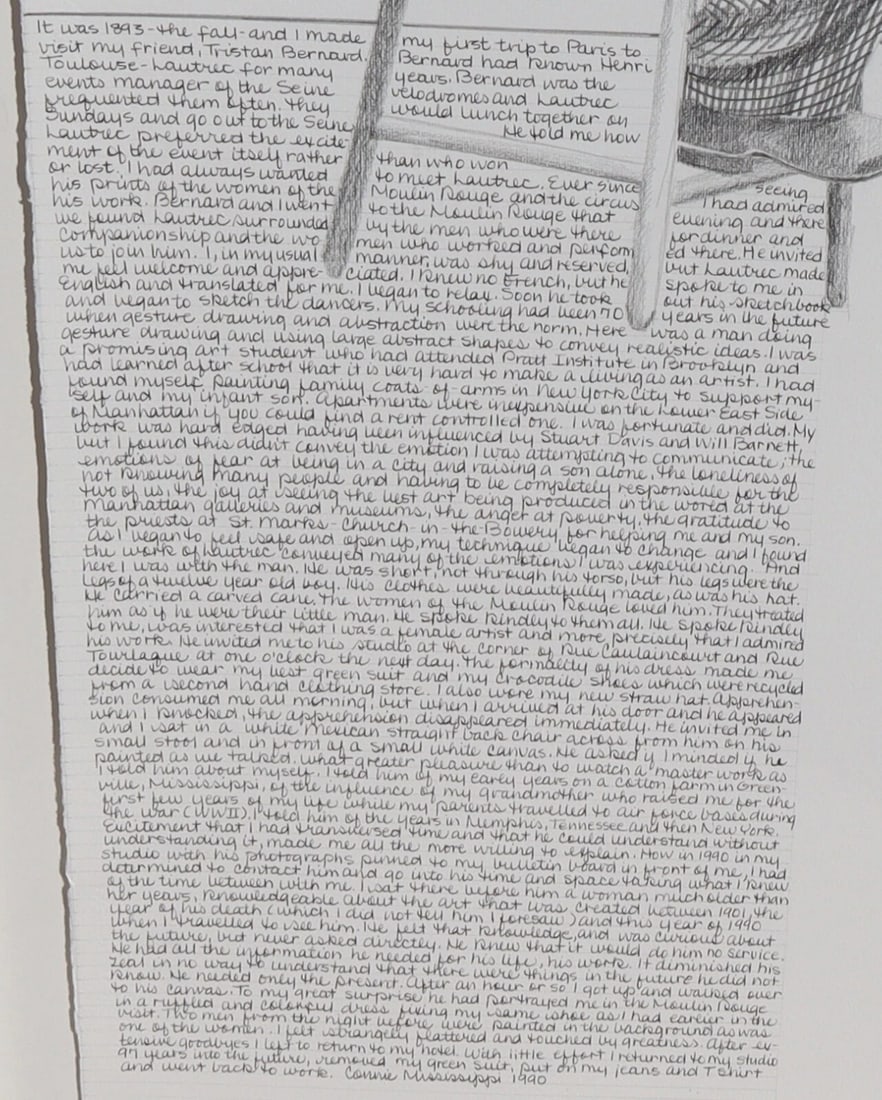 It was 1893-the fall-and I made my first trip to Paris to
visit my friend, Tristan Bernard. Bernard had known Henri
Toulouse-Lautrec for many years. Bernard was the
events manager of the Seine velodromes and Lautrec
frequented them often. They would lunch together on
Sundays and go out to the Seine. He told me how
Lautrec preferred the excite-
ment of the event itself rather than who won
or lost. I had always wanted to meet Lautrec. Ever since seeing
his prints of the women of the Moulin Rouge and the circus I had admired
his work. Bernard and I went to the Moulin Rouge that evening and there
we found Lautrec surrounded by the men who were there for dinner and
companionship and the wo men who worked and perform ed there. He invited
us to join him. I, in my usual manner, was shy and reserved, but Lautrec made
me feel welcome and appre- ciated. I knew no French, but he spoke to me in
English and translated for me. I began to relax. Soon he took out his sketchbook
and began to sketch the dancers. My schooling had been 70 years in the future
when gesture drawing and abstraction were the norm. Here was a man doing
gesture drawing and using large abstract shapes to convey realistic ideas. I was
a promising art student who had attended Pratt Institute in Brooklyn and
had learned after school that it is very hard to make a living as an artist. I had
found myself painting family coats-of-arms in New York City to support my-
self and my infant son. Apartments were inexpensive on the Lower East Side
of Manhattan if you could find a rent controlled one. I was fortunate and did. My
work was hard edged having been influenced by Stuart Davis and Will Barnett,
but I found this didn't convey the emotion I was attempting to communicate; the
emotions of fear at being in a city and raising a son alone, the loneliness of
not knowing many people and having to be completely responsible for the
two of us, the joy at seeing the best art being produced in the world at the
Manhattan galleries and museums, the anger at poverty, the gratitude to
the priests at St. Marks-Church-in-the-Bowery, for helping me and my son.
as I began to feel safe and open up, my technique began to change and I found
the work of Lautrec conveyed many of the emotions I was experiencing. And
here I was with the man. He was short, not through his torso, but his legs were the
legs of a twelve year old boy. His clothes were beautifully made, as was his hat.
He carried a carved cane. The women of the Moulin Rouge loved him. They treated
him as if he were their little man. He spoke kindly to them all. He spoke kindly
to me, was interested that I was a female artist and more precisely that I admired
his work. He invited me to his studio at the corner of Rue Caulaincourt and Rue
Tourlaque at one o'clock the next day. The formality of his dress made me
decide to wear my best green suit and my crocodile shoes which were recycled
from a second hand clothing store. I also wore my new straw hat. Apprehen-
sion consumed me all morning, but when I arrived at his door and he appeared
when I knocked, the apprehension disappeared immediately. He invited me in
and I sat in a white Mexican straight back chair across from him on his
small stool and in front of a small white canvas. He asked if I minded if he
painted as we talked. What greater pleasure than to watch a master work as
I told him about myself. I told him of my early years on a cotton farm in Green-
ville, Mississippi, of the influence of my grandmother who raised me for the
first few years of my life while my parents travelled to air force bases during
the war (WWII). I told him of the years in Memphis, Tennessee and then New York.
Excitement that I had transversed time and that he could understand without
understanding it, made me all the more willing to explain. How in 1990 in my
studio with his photographs pinned to my bulletin board in front of me, I had
determined to contact him and go into his time and space taking what I knew
of the time between with me. I sat there before him a woman much older than
her years, knowledgeable about the art that was created between 1901, the
year of his death (which I did not tell him I foresaw) and this year of 1990
when I travelled to see him. He felt that knowledge, and was curious about
the future, but never asked directly. He knew that it would do him no service.
He had all the information he needed for his life, his work. It diminished his
zeal in no way to understand that there were things in the future he did not
know. He needed only the present. After an hour or so I got up and walked over
to his canvas. To my great surprise he had portrayed me in the Moulin Rouge
in a ruffled and colorful dress fixing my same shoe as I had earlier in the
visit. Two men from the night before were painted in the background as was
one of the women. I felt strangely flattered and touched by greatness. After ex-
tensive goodbyes I left to return to my hotel. With little effort I returned to my studio
97 years into the future, removed my green suit, put on my jeans and T shirt
and went back to work. Connie Mississippi 1990